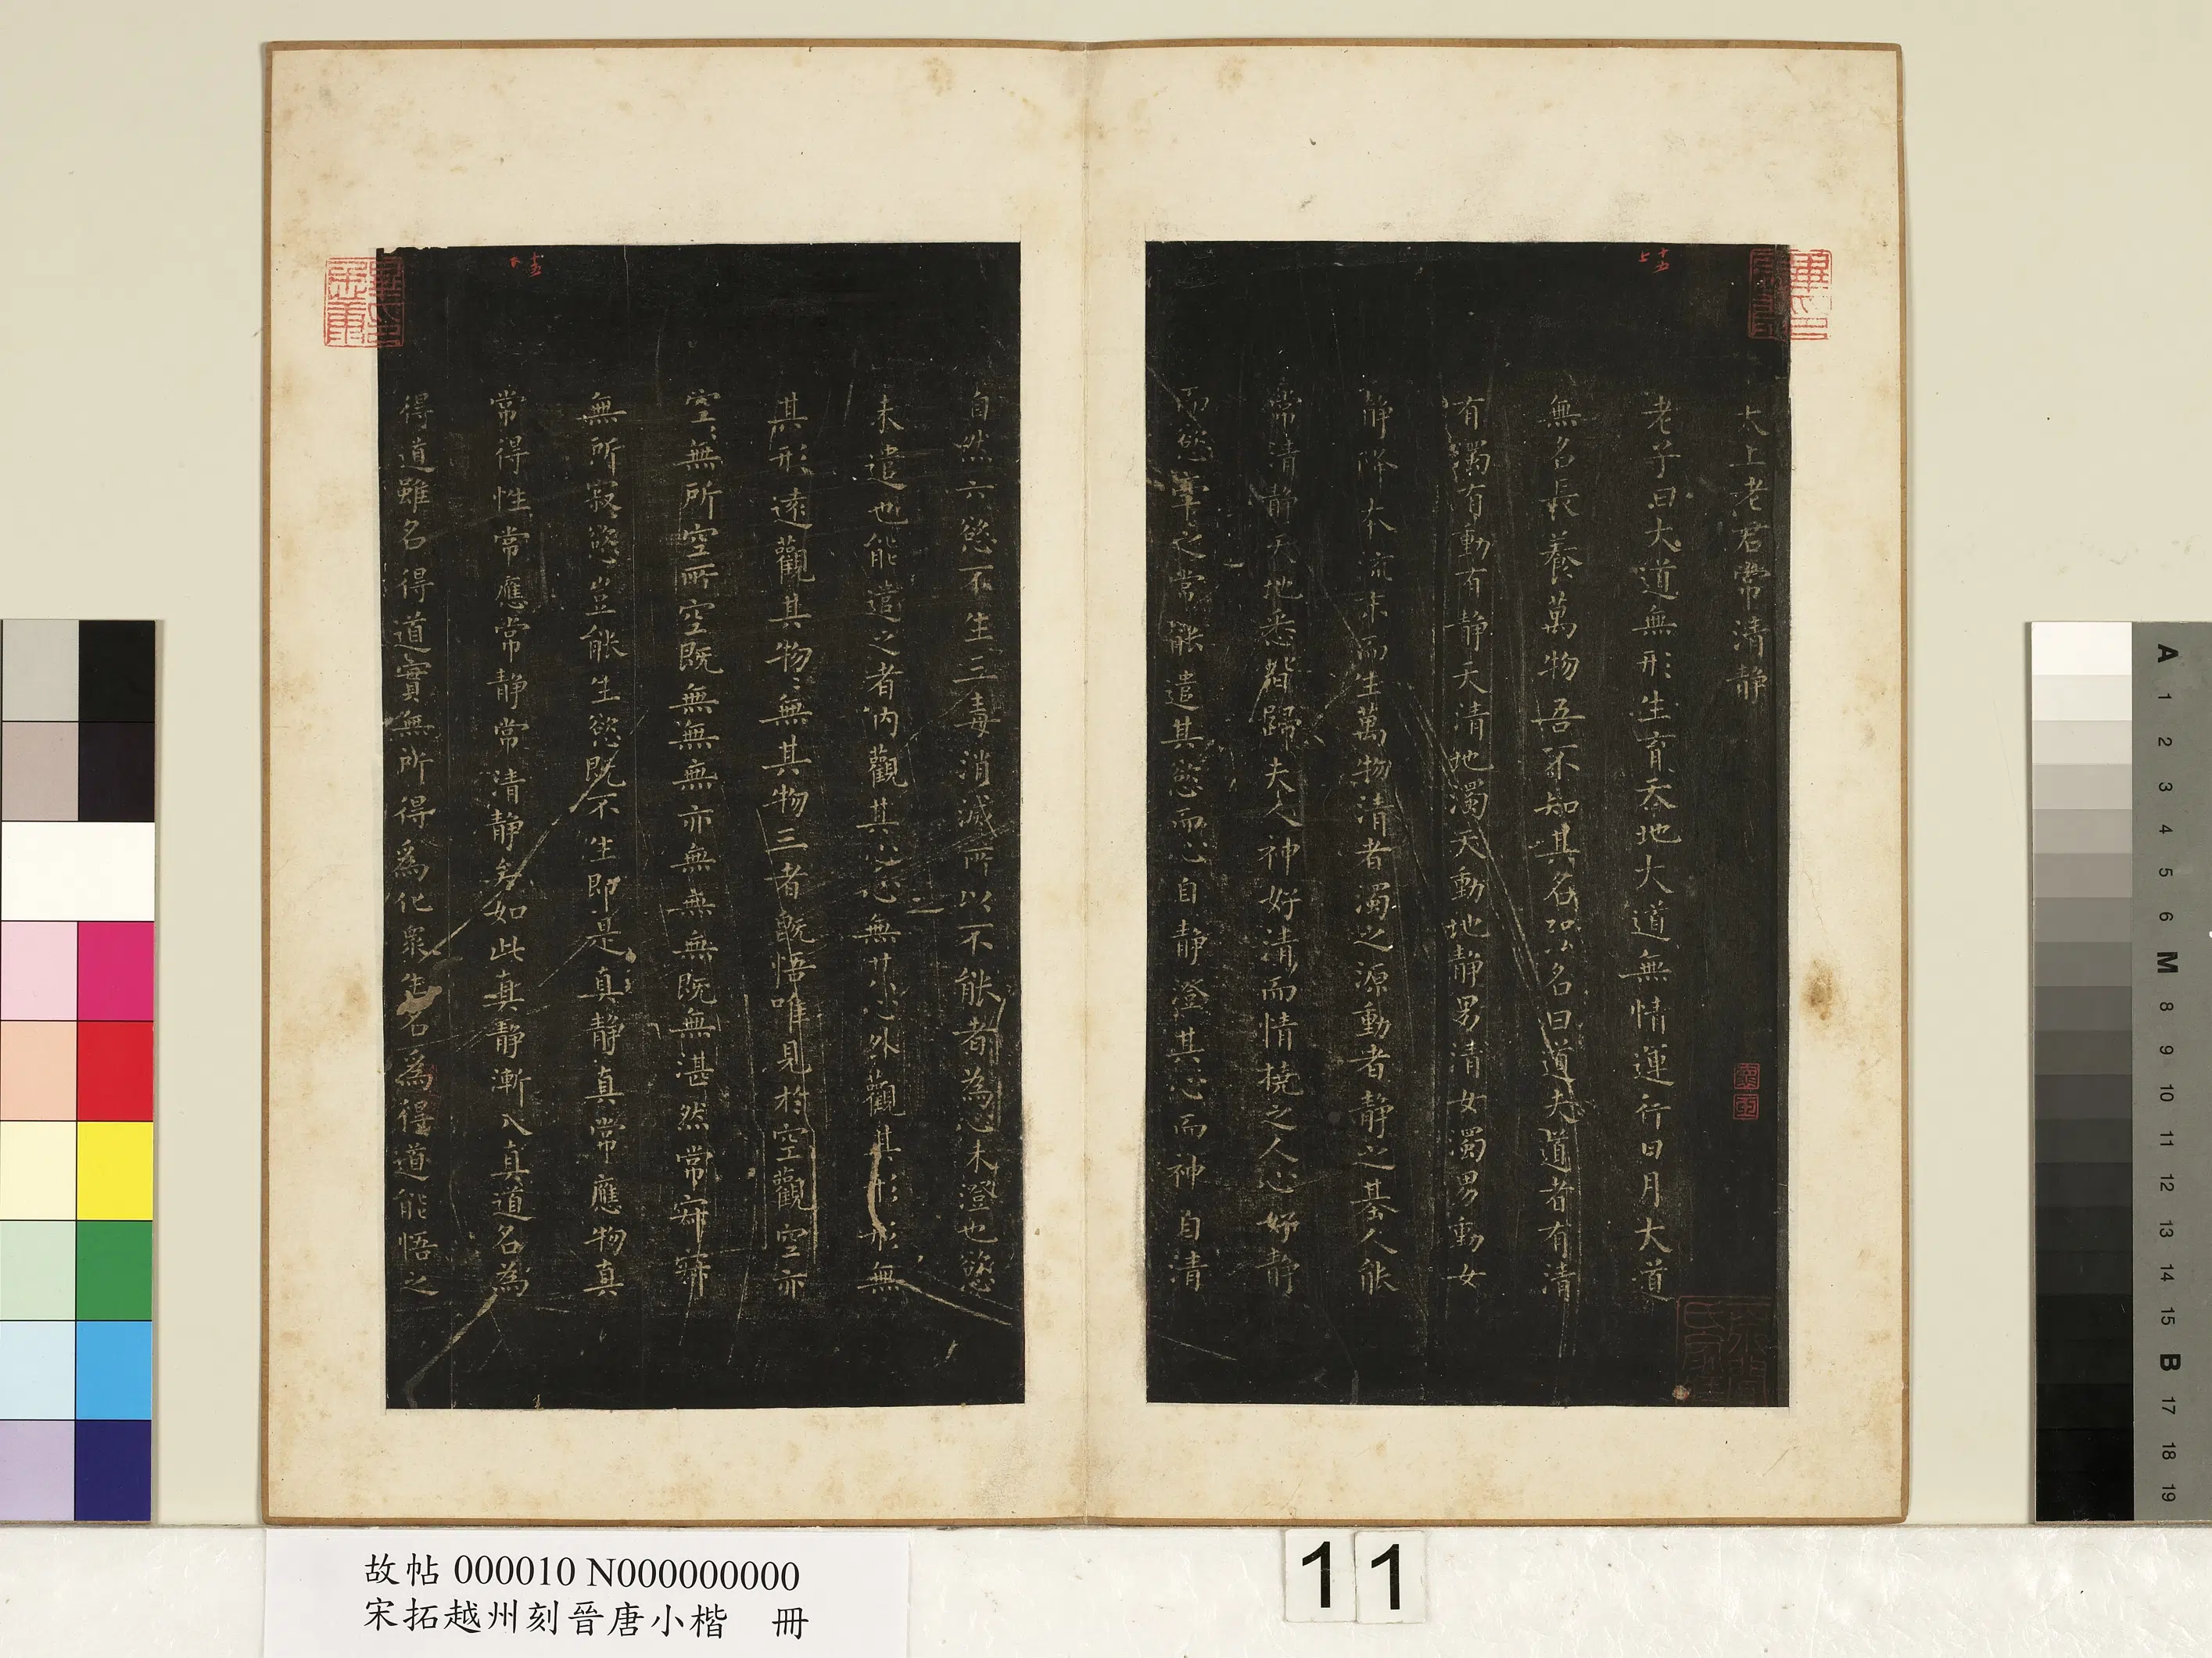 太上老君常清静
老子曰大道無形生育天地大道無情運行日月大道
無名長養萬物吾不知其名强名曰道夫道者有清
有濁有動有静天清地濁天動地静男清女濁男動女
静降本流末而生萬物清者濁之源動者静之基人能
常清静天地悉皆歸夫人神好清而情撓之人心好静
而慾牽之常能遣其慾而心自静澄其心而神自清
自然六慾不生三毒消滅所以不能者為心未澄也慾
未遣也能遣之者内觀其心心無其心外觀其形形無
其形遠觀其物物無其物三者既悟唯見於空觀空亦
空空無所空所空既無無無亦無無無既無湛然常寂寂
無所寂慾豈能生慾既不生即是真静真常應物真
常得性常應常静常清静矣如此真静漸入真道名為
得道雖名得道實無所得為化衆生名為得道能悟之
十五
上
十五
下
故帖 000010 N000000000
宋拓越州刻晉唐小楷 冊
11
A
1
2
3
4
5
6
M
8
9
10
11
12
13
14
15
B
17
18
19